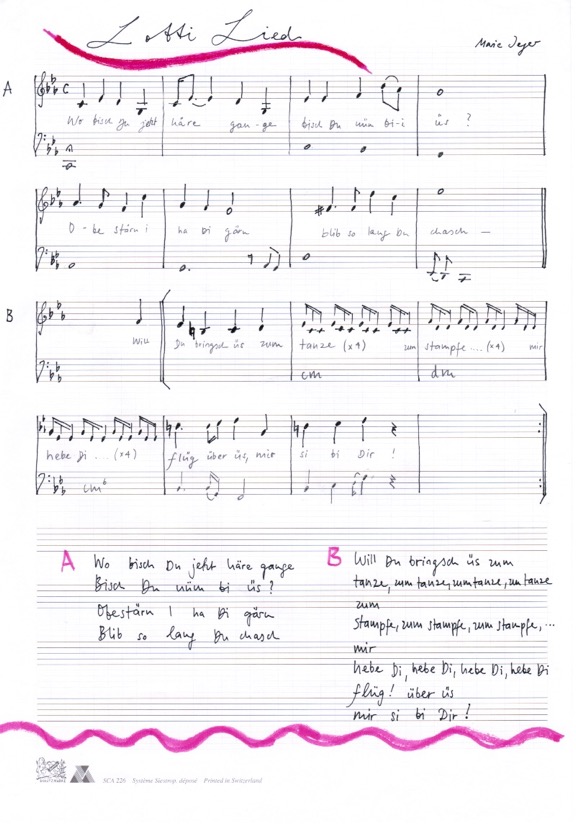 Lotti Lied
Marie Jeger
A
Wo bisch Du jetzt häre gan-ge bisch Du nüm bi-i üs ?
O-be stärn i ha Di gärn blib so lang Du chasch —
B
Will Du bringsch üs zum tanze (x4) zum stampfe.... (x4) mir
cm dm
hebe Di .... (x4) flüg über üs, mir si bi Dir !
cm6
A
Wo bisch Du jetzt häre gange
Bisch Du nüm bi üs ?
Obestärn I ha Di gärn
Blib so lang Du chasch
B
Will Du bringsch üs zum
tanze, zum tanze, zum tanze, zum tanze
zum
stampfe, zum stampfe, zum stampfe, ...
mir
hebe Di, hebe Di, hebe Di, hebe Di
flüg! über üs
mir si bi Dir !
SCA 226 Système Siestrop. déposé Printed in Switzerland